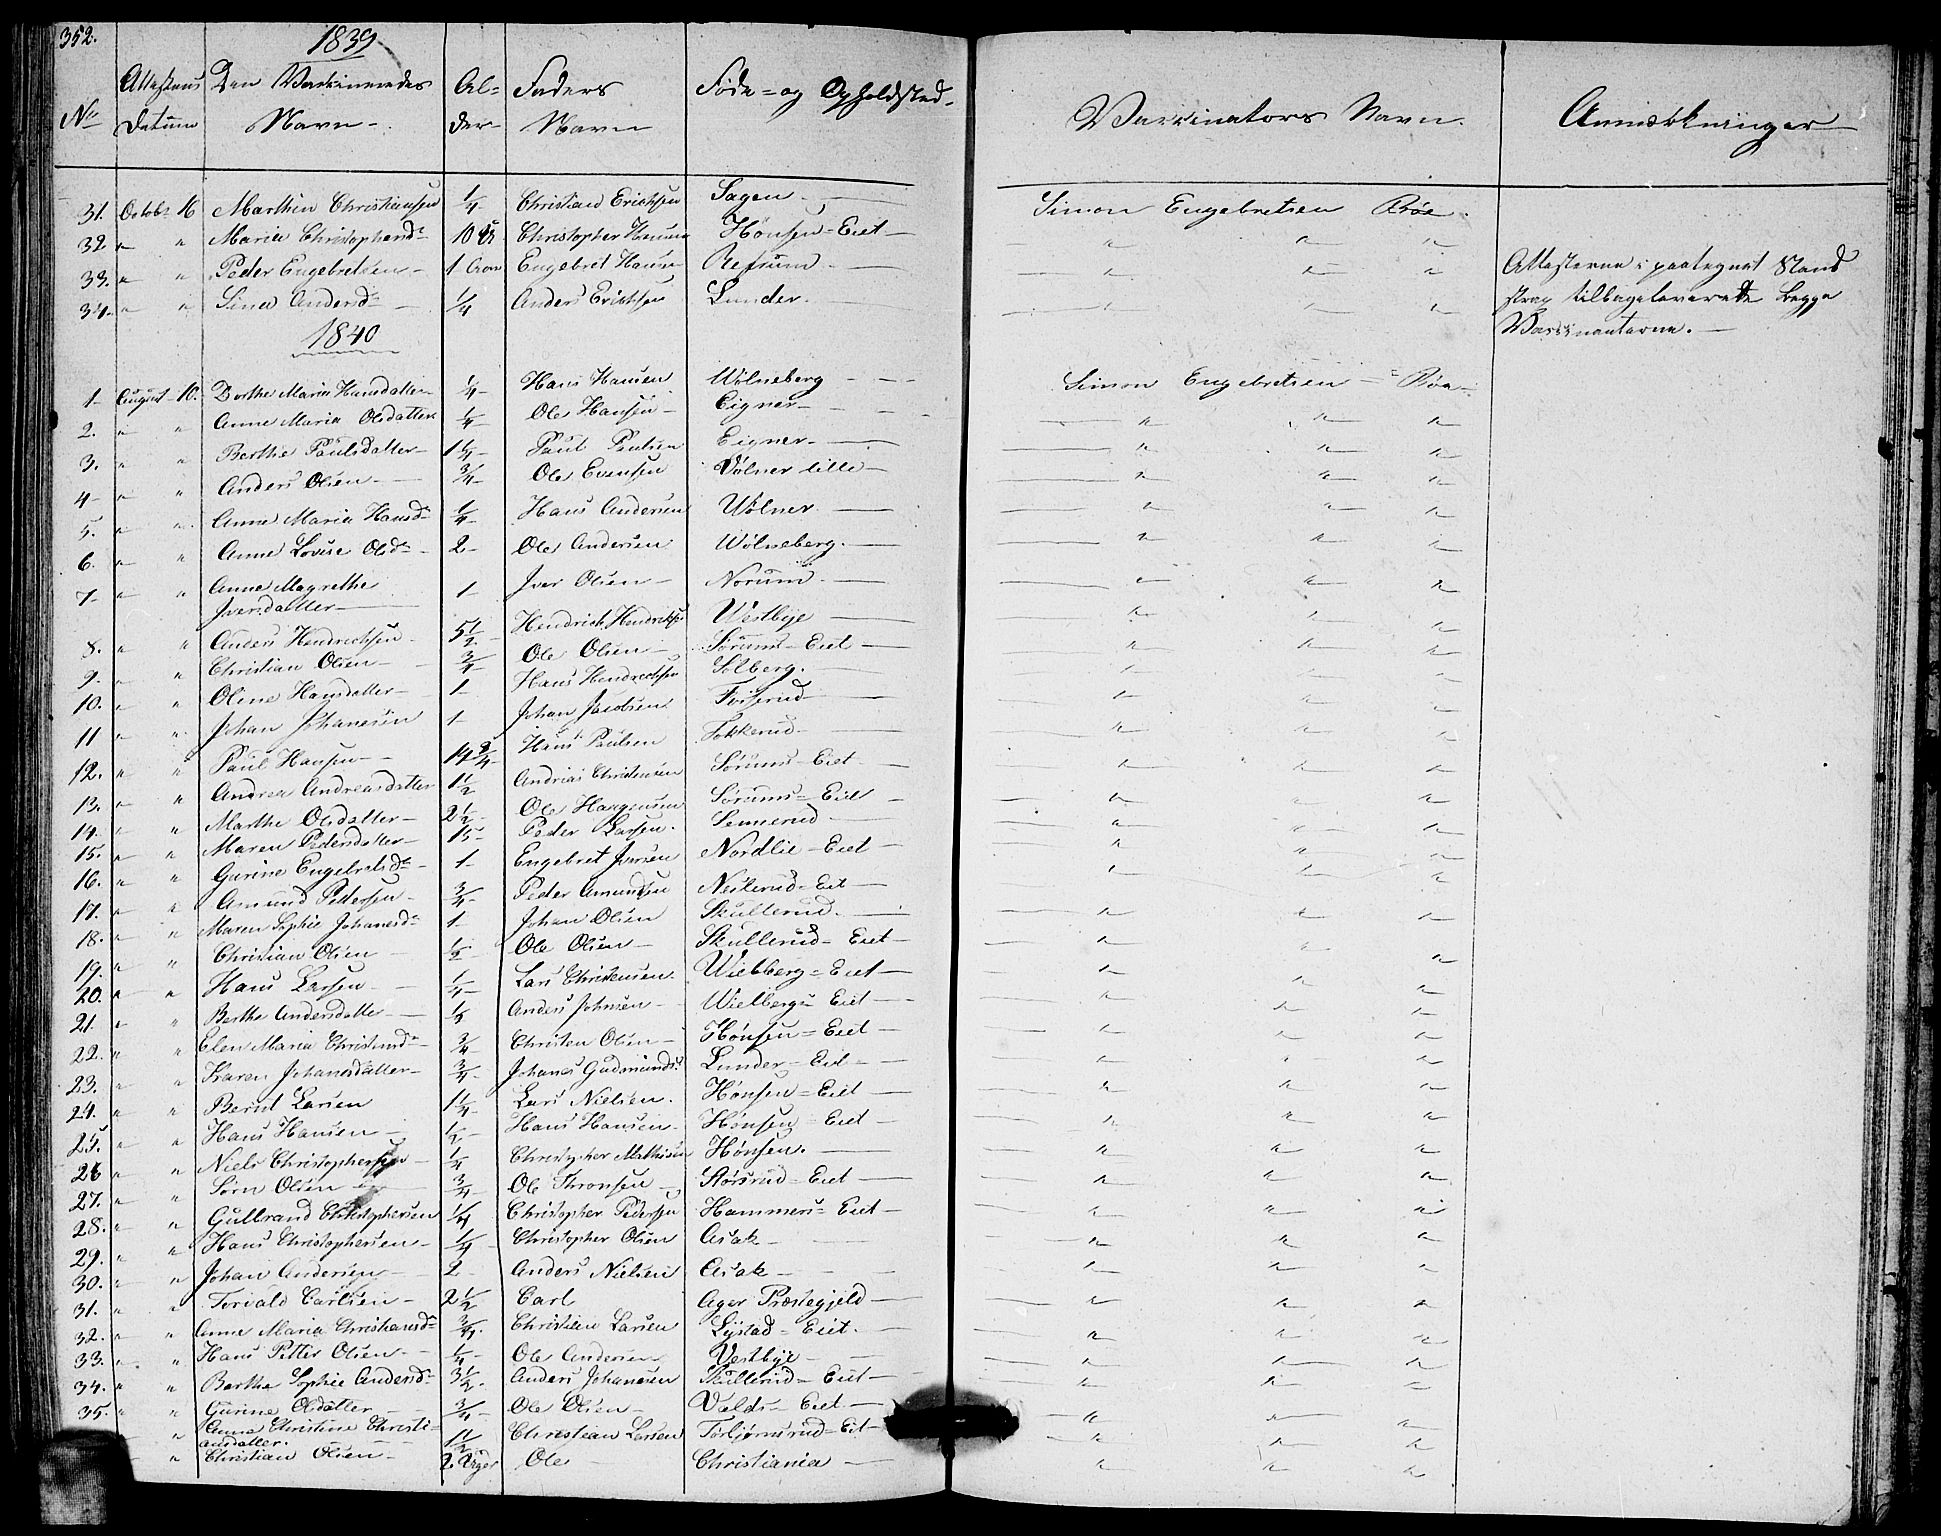 352.
1839
No Attestens Datum Den Vaccineredes Navn Alder Faders Navn Føde- og Opholdsted Vaccinators Navn. Anmærkninger
31. Octobr 16 Marthin Christiansen 1/4 Christian Erichsen Sagen Simon Engebretsen Røe.
32 " " Maria Christophersdr 10 Christopher Hønsen-Eiet " " "
33. " " Peder Engebretsen 1 Engebret " " "
34. " " Anders Erichsen 1/4 Lunder. " " "
Attesterne i paategnet Stand
strax tilbageleverede begge
Vaccinanterne.
1840
1 August 10. Berthe Maria Hansdatter 1/4 Hans Hansen Wølneberg Simon Engebretsen Røe
2. " " Anne Maria Olsdatter 1/4 Ole Hansen Eigner " " "
3. " " Berthe Paulsdatter 1 1/4 Paul Paulsen Eigner " " "
4 " " Anders Olsen 3/4 Ole Evensen Vølner lille " " "
5. " " Anne Maria Hansdr 1/4 Hans Andersen Wølner " " "
6. " " Anne Lovise Olsdr 2 Ole Andersen Wølneberg. " " "
7 " " Anne Magrethe Iversdatter 1 Iver Olsen Norum " " "
8. " " Anders Hendrechsen 5 1/2 Hendrich Hendrichsen Westbye " " "
9. " " Christian Olsen 3/4 Ole Olsen Sørums-Eiet " " "
10. " " Oline Hansdatter 1 Hans Hendrechsen Solberg. " " "
11 " " Johan Johanesen 1 Johan Jacobsen " " "
12. " " Paul Hansen 14 3/4 Hans Paulsen Fokkerud " " "
13. " " Andrea Andreasdatter 1 1/2 Andrias Christensen Sørums-Eiet " " "
14. " " Marthe Olsdatter 2 1/2 Ole Haagensen Sørums-Eiet " " "
15. " " Maren Pedersdatter 15 Peder Larsen. " " "
16. " " Gurine Engebretsdr 1 Engebret Iversen Nordlie-Eiet " " "
17. " " Amund Pettersen 3/4 Peder Amundsen " " "
18. " " Maren Sophie Johanesdr 1 Johan Olsen Skullerud. " " "
19. " " Christian Olsen 1/2 Ole Olsen Skullerud-Eiet " " "
20. " " Hans Larsen 1/4 Lars Christensen Wielberg-Eiet " " "
21. " " Berthe Andersdatter Anders Johnsen Wielbergs Eiet " " "
22. " " Elen Maria Christensdr 3/4 Christen Olsen Hønsen-Eiet " " "
23. " " Karen Johanesdatter 3/4 Johanes Gudmunds. Lunder-Eiet " " "
24. " " Bernt Larsen 1 1/4 Lars Nielsen. Hønsen-Eiet " " "
25. " " Hans Hansen 1/2 Hans Hansen Hønsen-Eiet " " "
26 " " Niels Christophersen 1/4 Christopher Mathisen Hønsen. " " "
27. " " Sørn Olsen 3/4 Ole Thronsen Rørsrud-Eiet " " "
28. " " Gullrand Christophersen 1/4 Christopher Pedersen Hammers-Eiet " " "
29. " " Hans Christophersen 1/4 Christopher Olsen Asak " " "
30. " " Johan Andersen 2 Anders Nielsen Asak " " "
31. " " Torvald Carlsen 2 1/2 Carl Ager Præstegjeld " " "
32. " " Anne Maria Christiansdr 3/4. Christian Larsen Lystad-Eiet. " " "
33. " " Hans Petter Olsen 1/4 Ole Andersen Vestbye " " "
34. " " Berthe Sophie Andersdr 3 1/2 Anders Johanesen Skullerud-Eiet " " "
35. " " Gurine Olsdatter 3/4 Ole Olsen Valds-Eiet " " "
" Anne Christine Christiansdatter. 1 1/2 Christian Larsen Torbjørnsrud-Eiet " " "
" Christian Olsen 2 Uger Ole Christiania " " "